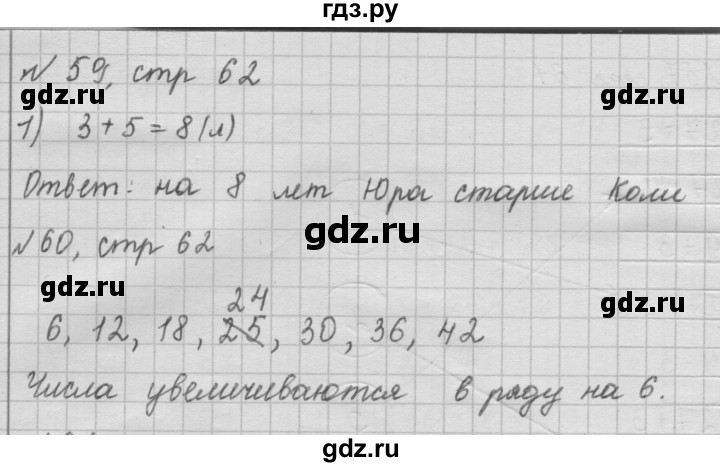 гдз.ру
№ 59, стр 62
gdz.ru
gdz.ru
1) 3 + 5 = 8 (л)
Ответ: на 8 лет Юра старше Коли
gdz.ru
№ 60, стр 62
gdz.ru
gdz.ru
24
6, 12, 18, 25, 30, 36, 42
Числа увеличиваются в ряду на 6.
gdz.ru